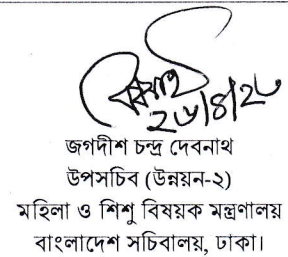 ২৬/৪/২৩
জগদীশ চন্দ্র দেবনাথ
উপসচিব (উন্নয়ন-২)
মহিলা ও শিশু বিষয়ক মন্ত্রণালয়
বাংলাদেশ সচিবালয়, ঢাকা।